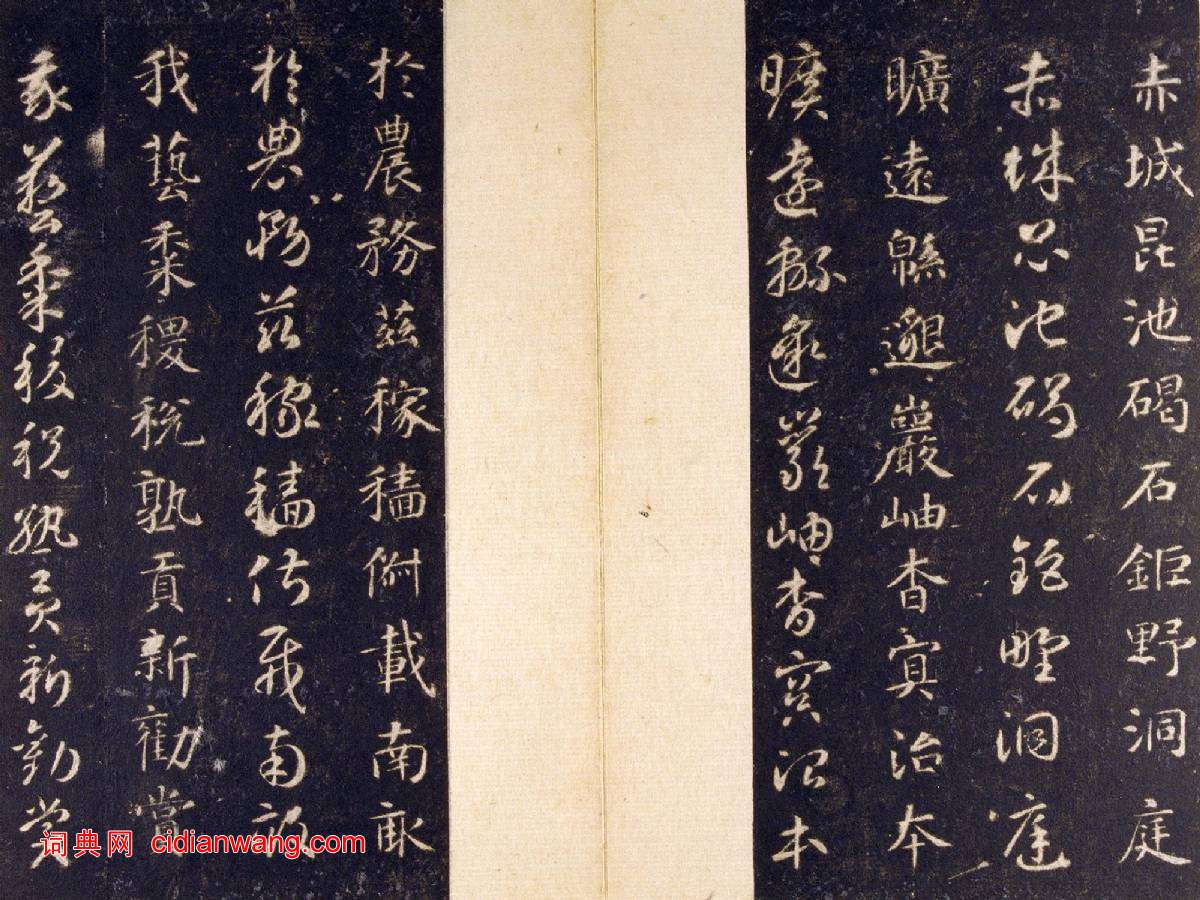 赤城昆池碣石鉅野洞庭
赤城昆池碣石鉅野洞庭
曠遠緜邈巖岫杳冥治本
曠遠緜邈巖岫杳冥治本
於農務茲稼穡俶載南畝
於農務茲稼穡俶載南畝
我藝黍稷稅孰貢新勸賞
我藝黍稷稅熟貢新勸賞
词典网 cidianwang.com